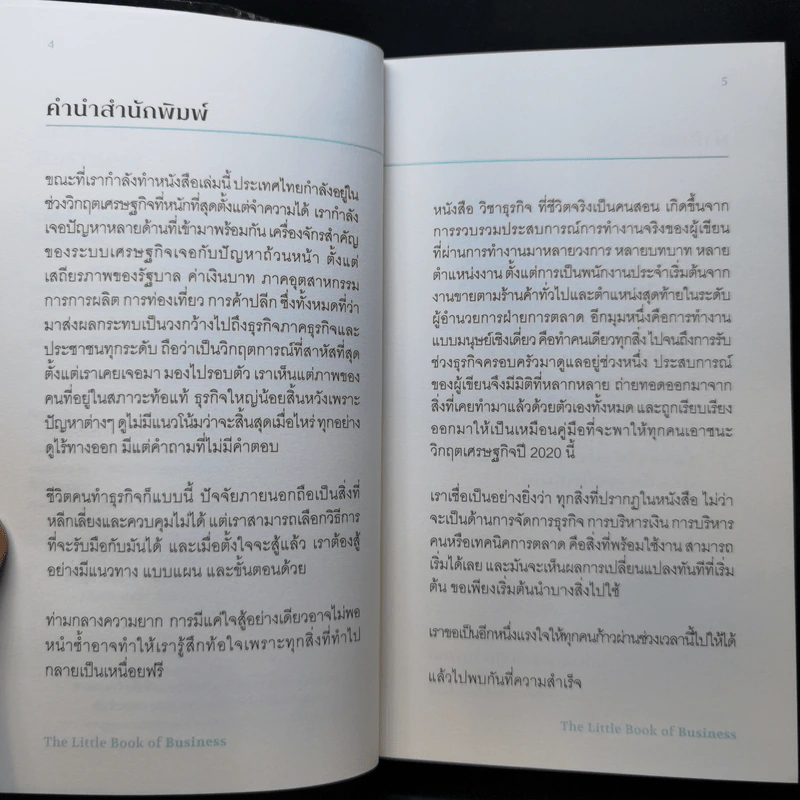 4
คำนำสำนักพิมพ์
ขณะที่เรากำลังทำหนังสือเล่มนี้ ประเทศไทยกำลังอยู่ใน
ช่วงวิกฤตเศรษฐกิจที่หนักที่สุดตั้งแต่จำความได้ เรากำลัง
เจอปัญหาหลายด้านที่เข้ามาพร้อมกัน เครื่องจักรสำคัญ
ของระบบเศรษฐกิจเจอกับปัญหาถ้วนหน้า ตั้งแต่
เสถียรภาพของรัฐบาล ค่าเงินบาท ภาคอุตสาหกรรม
การการผลิต การท่องเที่ยว การค้าปลีก ซึ่งทั้งหมดที่ว่า
มาส่งผลกระทบเป็นวงกว้างไปถึงธุรกิจภาคธุรกิจและ
ประชาชนทุกระดับ ถือว่าเป็นวิกฤตการณ์ที่สาหัสที่สุด
ตั้งแต่เราเคยเจอมา มองไปรอบตัว เราเห็นแต่ภาพของ
คนที่อยู่ในสภาวะท้อแท้ ธุรกิจใหญ่น้อยสิ้นหวังเพราะ
ปัญหาต่างๆ ดูไม่มีแนวโน้มว่าจะสิ้นสุดเมื่อไหร่ ทุกอย่าง
ดูไร้ทางออก มีแต่คำถามที่ไม่มีคำตอบ
ชีวิตคนทำธุรกิจก็แบบนี้ ปัจจัยภายนอกถือเป็นสิ่งที่
หลีกเลี่ยงและควบคุมไม่ได้ แต่เราสามารถเลือกวิธีการ
ที่จะรับมือกับมันได้ และเมื่อตั้งใจจะสู้แล้ว เราต้องสู้
อย่างมีแนวทาง แบบแผน และขั้นตอนด้วย
ท่ามกลางความยาก การมีแค่ใจสู้อย่างเดียวอาจไม่พอ
หนำซ้ำอาจทำให้เรารู้สึกท้อใจเพราะทุกสิ่งที่ทำไป
กลายเป็นเหนื่อยฟรี
The Little Book of Business
5
หนังสือ วิชาธุรกิจ ที่ชีวิตจริงเป็นคนสอน เกิดขึ้นจาก
การรวบรวมประสบการณ์การทำงานจริงของผู้เขียน
ที่ผ่านการทำงานมาหลายวงการ หลายบทบาท หลาย
ตำแหน่งงาน ตั้งแต่การเป็นพนักงานประจำเริ่มต้นจาก
งานขายตามร้านค้าทั่วไปและตำแหน่งสุดท้ายในระดับ
ผู้อำนวยการฝ่ายการตลาด อีกมุมหนึ่งคือการทำงาน
แบบมนุษย์เชิงเดี่ยว คือทำคนเดียวทุกสิ่ง ไปจนถึงการรับ
ช่วงธุรกิจครอบครัวมาดูแลอยู่ช่วงหนึ่ง ประสบการณ์
ของผู้เขียนจึงมีมิติที่หลากหลาย ถ่ายทอดออกมาจาก
สิ่งที่เคยทำมาแล้วด้วยตัวเองทั้งหมด และถูกเรียบเรียง
ออกมาให้เป็นเหมือนคู่มือที่จะพาให้ทุกคนเอาชนะ
วิกฤตเศรษฐกิจปี 2020 นี้
เราเชื่อเป็นอย่างยิ่งว่า ทุกสิ่งที่ปรากฏในหนังสือ ไม่ว่า
จะเป็นด้านการจัดการธุรกิจ การบริหารเงิน การบริหาร
คนหรือเทคนิคการตลาด คือสิ่งที่พร้อมใช้งาน สามารถ
เริ่มได้เลย และมันจะเห็นผลการเปลี่ยนแปลงทันทีที่เริ่ม
ต้น ขอเพียงเริ่มต้นนำบางสิ่งไปใช้
เราขอเป็นอีกหนึ่งแรงใจให้ทุกคนก้าวผ่านช่วงเวลานี้ไปให้ได้
แล้วไปพบกันที่ความสำเร็จ
The Little Book of Business